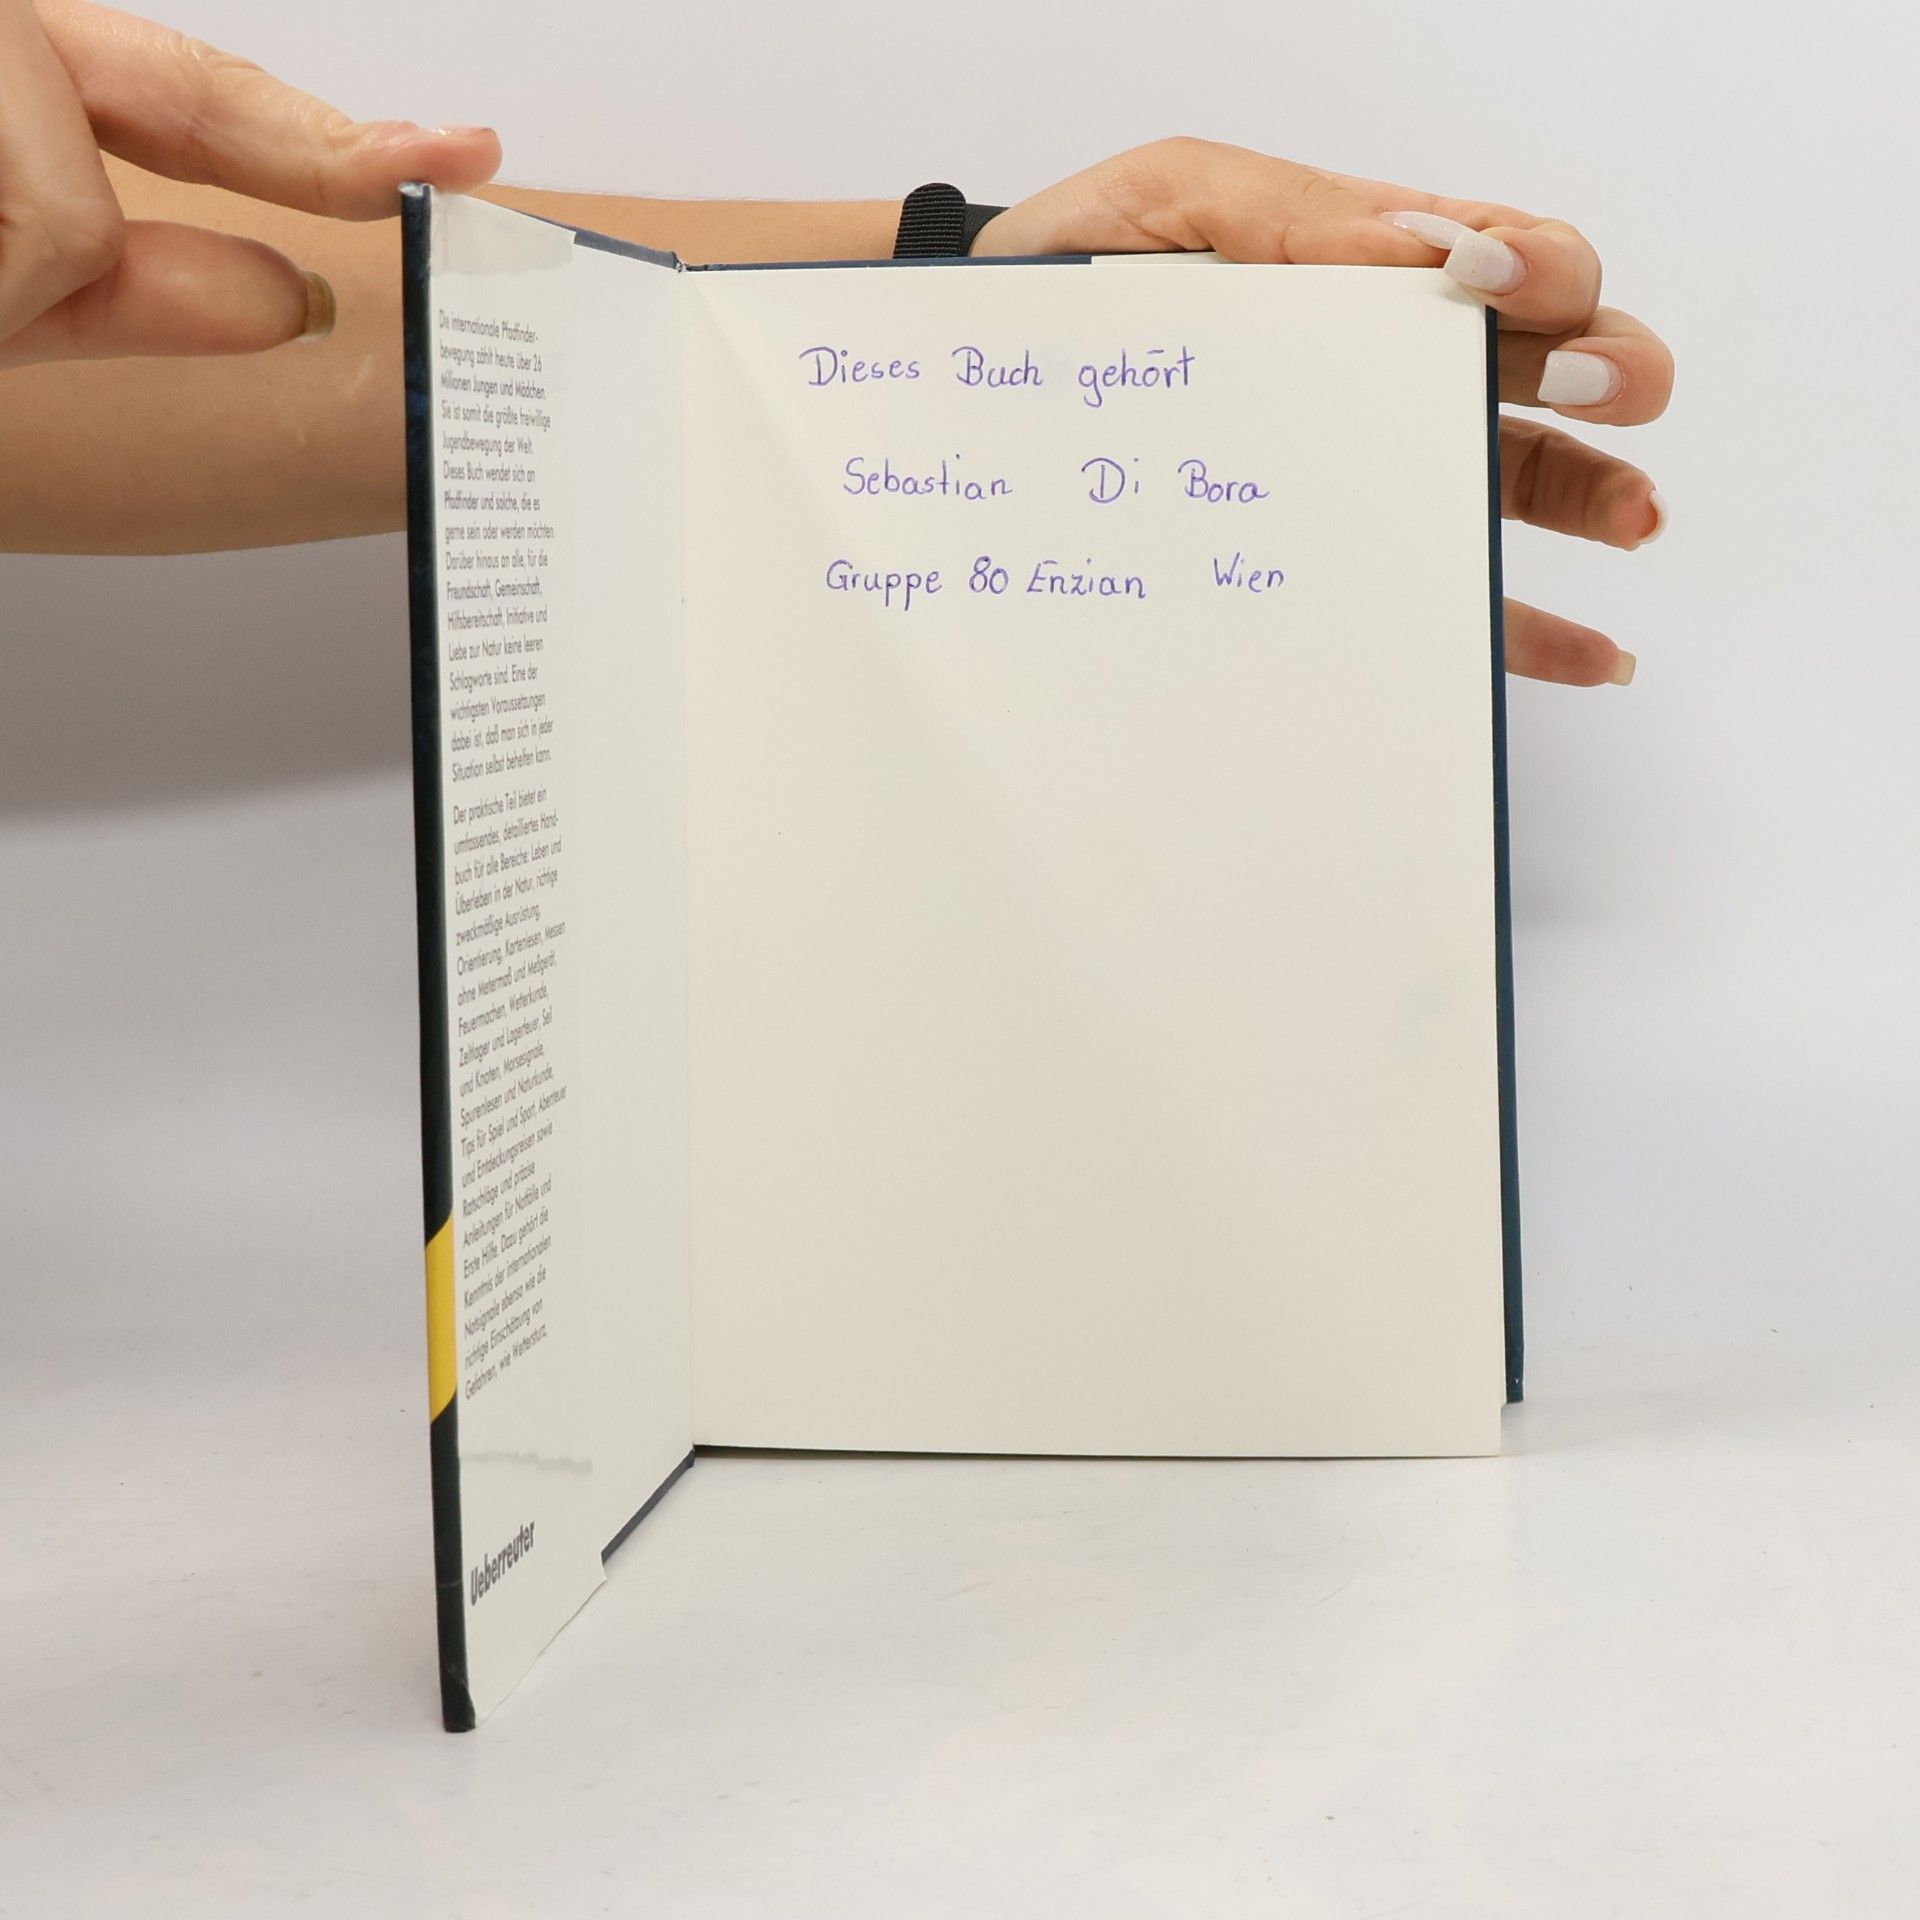 Die internationale Pfadfinder-
bewegung zählt heute über 26
Millionen Jungen und Mädchen.
Sie ist somit die größte freiwillige
Jugendbewegung der Welt.
Dieses Buch wendet sich an
Pfadfinder und solche, die es
gerne sein oder werden möchten.
Darüber hinaus an alle, für die
Freundschaft, Gemeinschaft,
Hilfsbereitschaft, Initiative und
Liebe zur Natur keine leeren
Schlagworte sind. Eine der
wichtigsten Voraussetzungen
dabei ist, daß man sich in jeder
Situation selbst behelfen kann.
Der praktische Teil bietet ein
umfassendes, detailliertes Hand-
buch für alle Bereiche: Leben und
Überleben in der Natur, richtige
zweckmäßige Ausrüstung,
Orientierung, Kartenlesen, Messen
ohne Metermaß und Meßgerät,
Feuermachen, Wetterkunde,
Zeltlager und Lagerfeuer, Seil
und Knoten, Morsesignale,
Spurenlesen und Naturkunde,
Tips für Spiel und Sport, Abenteuer
und Entdeckungsreisen sowie
Ratschläge und präzise
Anleitungen für Notfälle und
Erste Hilfe. Dazu gehört die
Kenntnis der internationalen
Notsignale ebenso wie die
richtige Einschätzung von
Gefahren, wie Wettersturz.
Ueberreuter
Dieses Buch gehört
Sebastian Di Bora
Gruppe 80 Enzian Wien